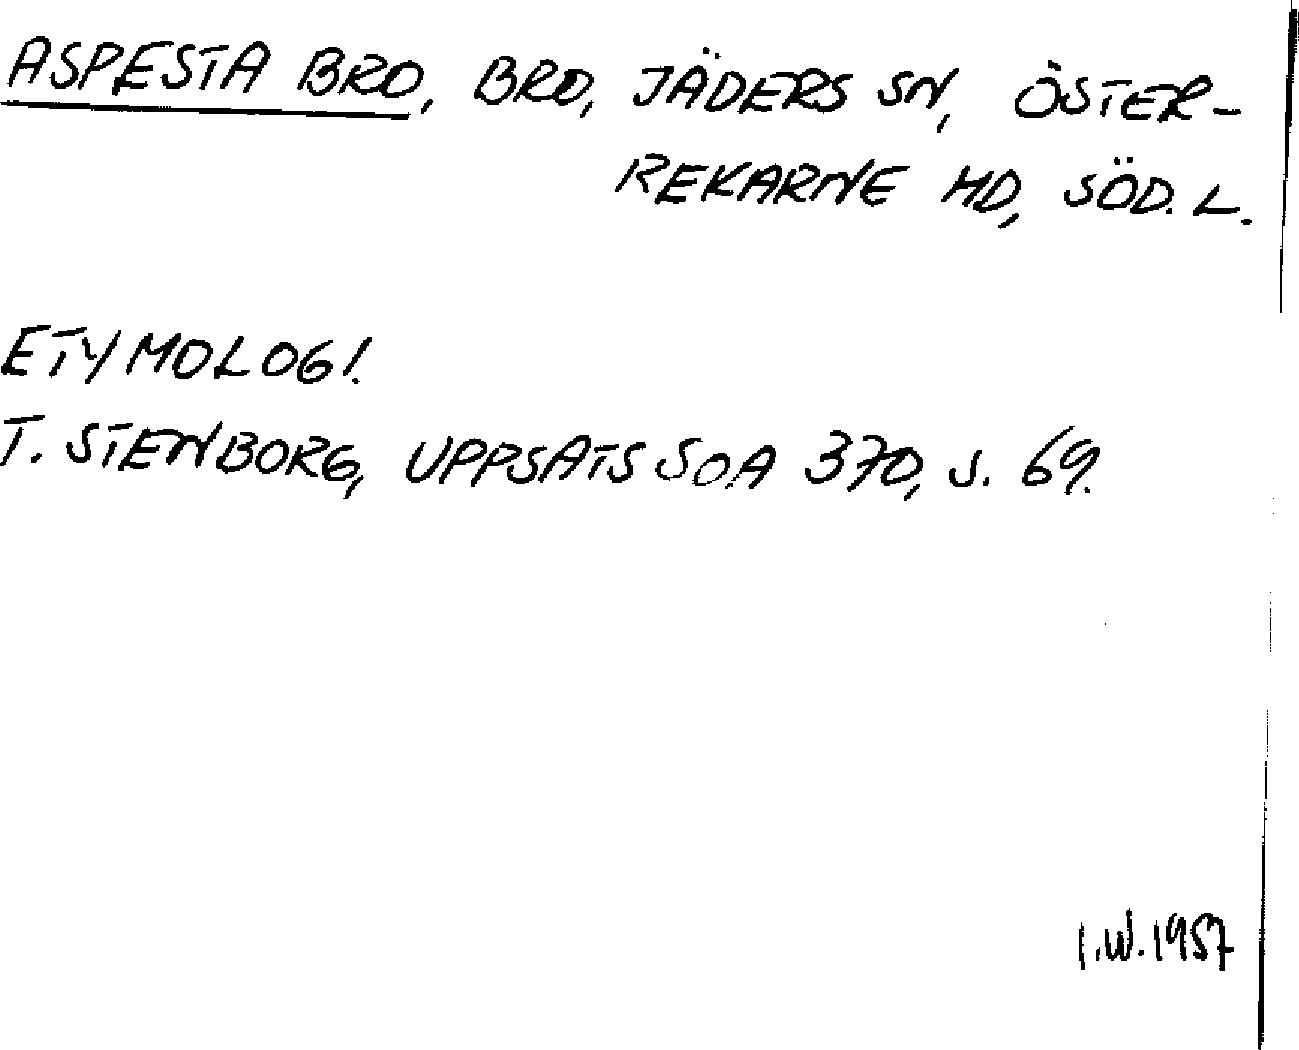 ASPESTA BRO, BRO, JÄDERS SN, ÖSTER-
REKARNE HD, SÖD. L.
ETYMOLOGI.
T. STENBORG, UPPSATS SOA 370, S. 69.
I.W. 1957